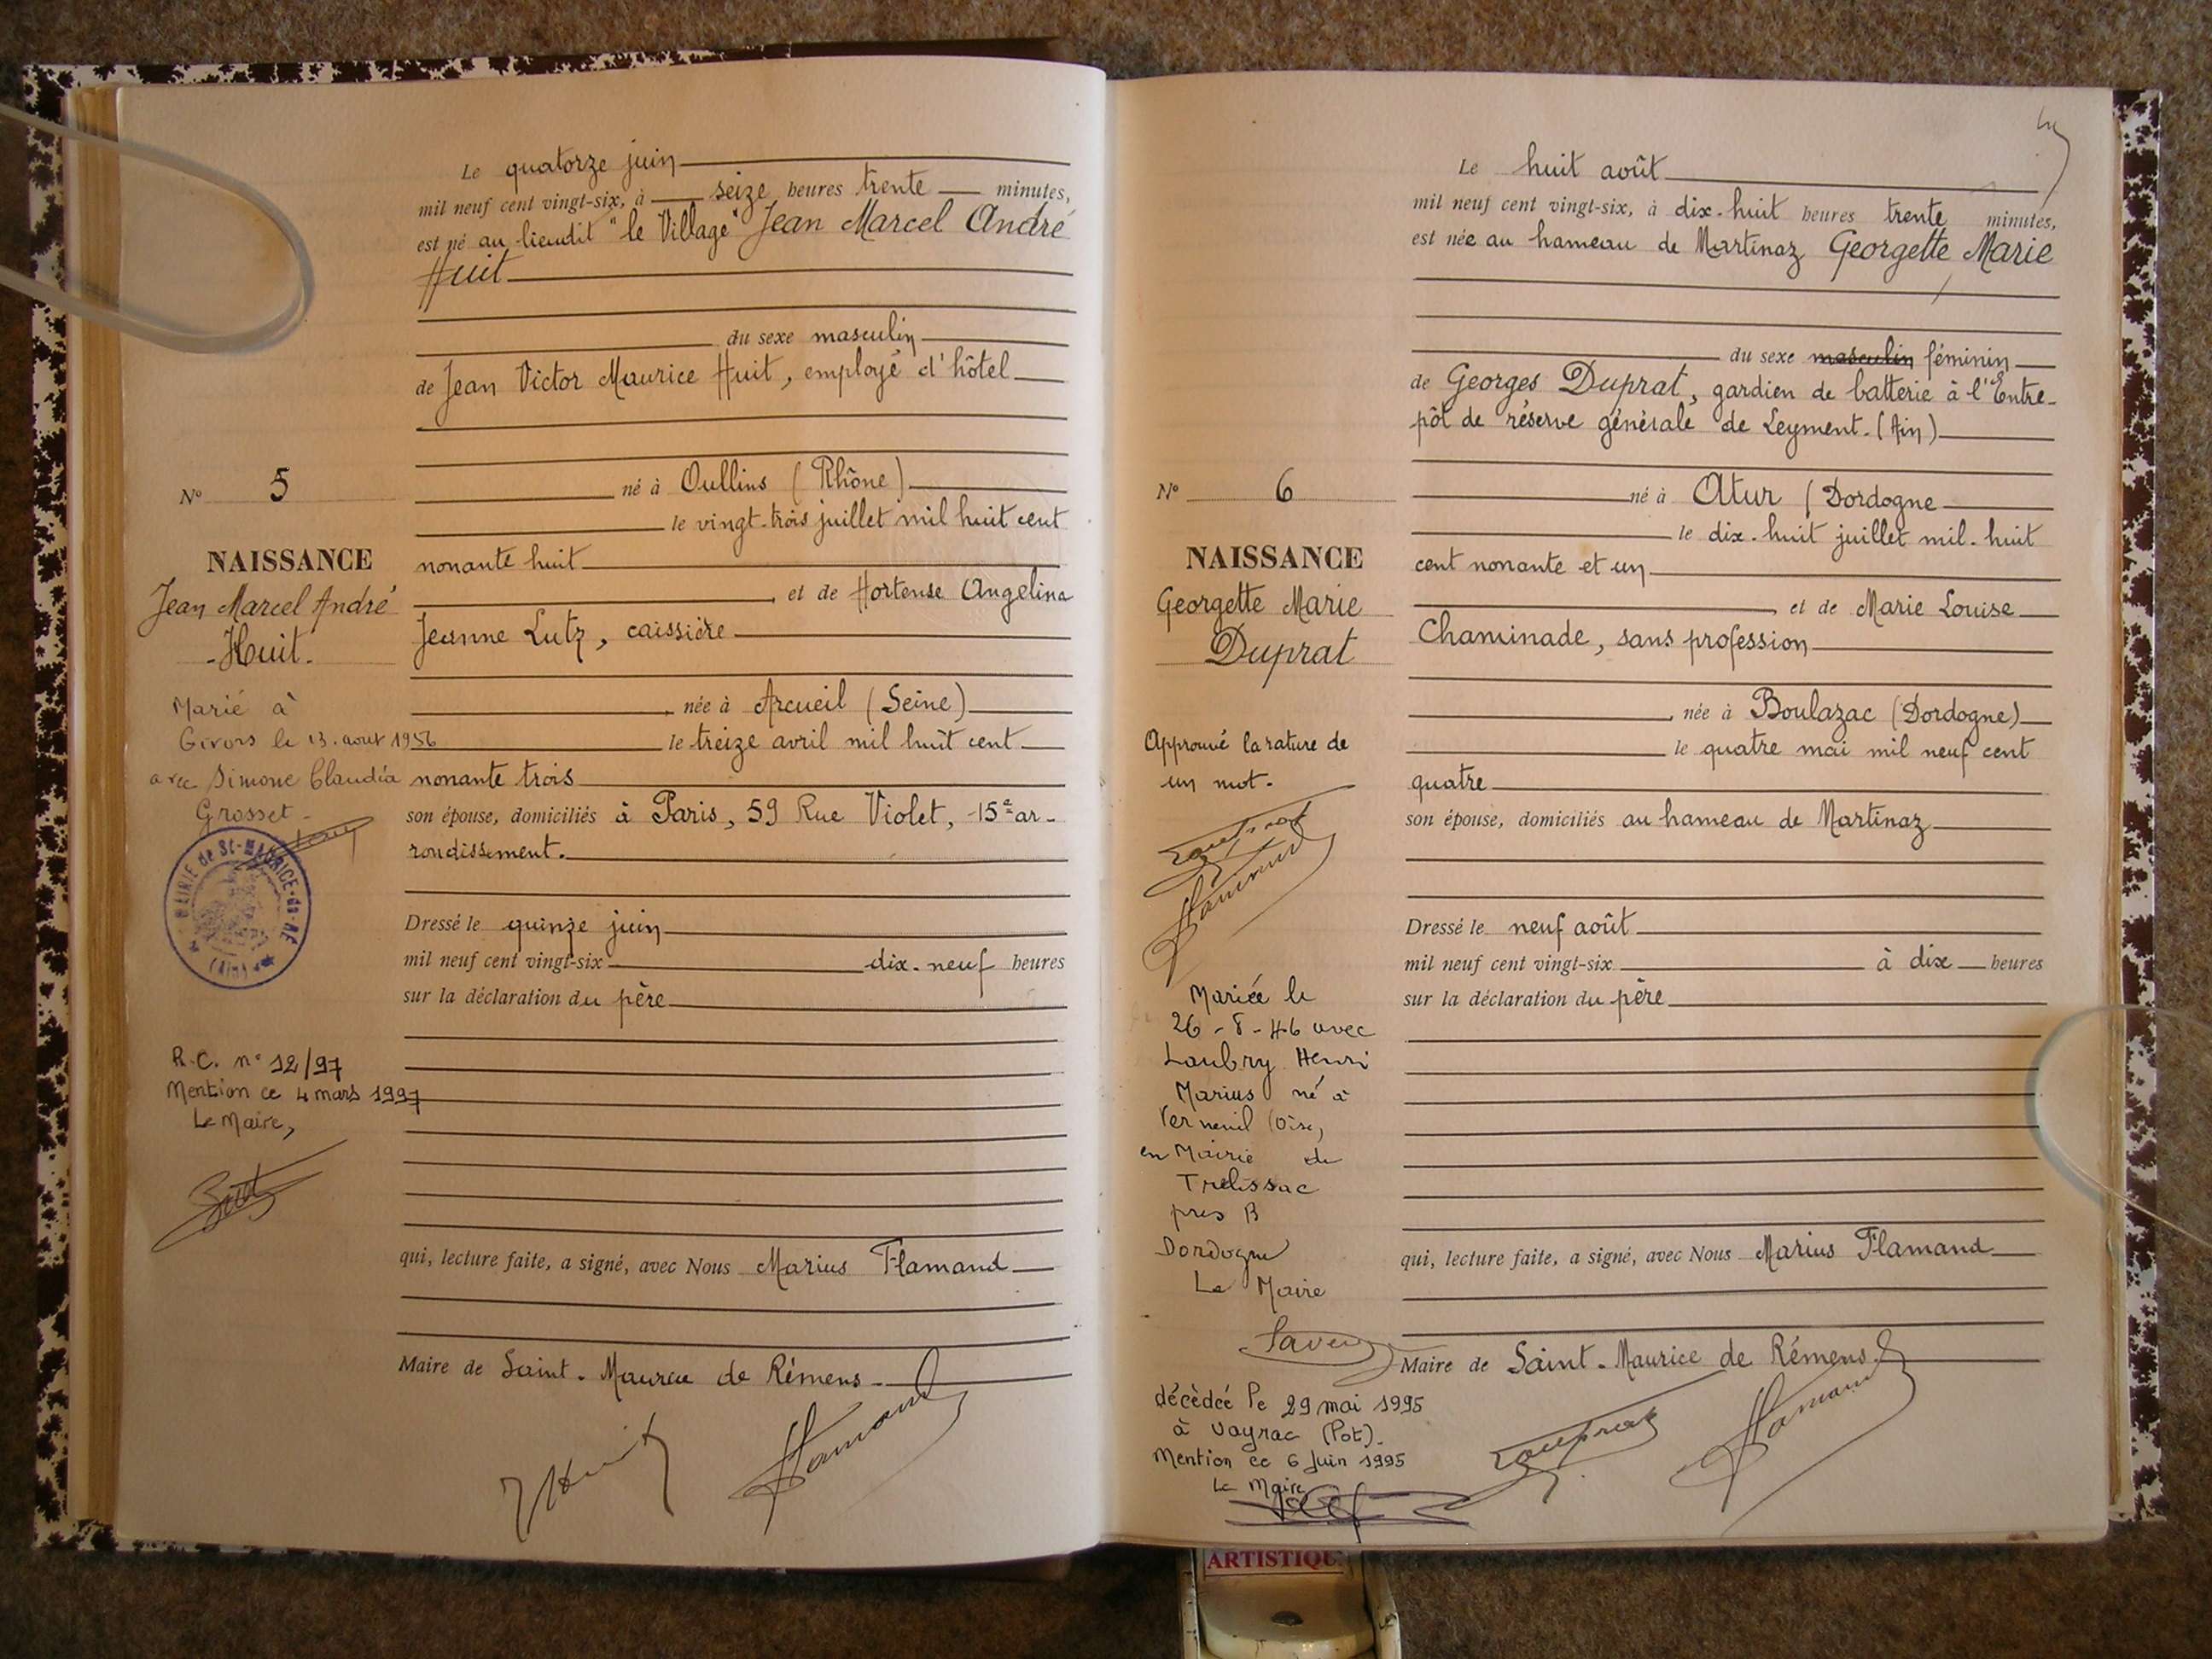 Le quatorze juin
mil neuf cent vingt-six, à seize heures trente minutes,
est né au lieudit "le Village" Jean Marcel André
Huit
du sexe masculin
de Jean Victor Maurice Huit, employé d'hôtel
né à Oullins (Rhône)
le vingt-trois juillet mil huit cent
nonante huit
et de Hortense Angelina
Jeanne Lutz, caissière
née à Arcueil (Seine)
le treize avril mil huit cent
nonante trois
son épouse, domiciliés à Paris, 59 Rue Violet, 15e ar-
rondissement.
Dressé le quinze juin
mil neuf cent vingt-six dix-neuf heures
sur la déclaration du père
qui, lecture faite, a signé, avec Nous Marius Flamand
Maire de Saint-Maurice de Rémens
JHuit Flamand
N° 5
NAISSANCE
Jean Marcel André
-Huit.
Marié à
Givors le 13 août 1956
avec Simone Claudia
Grosset
MAIRIE de St-MAURICE-de-RÉ
(Ain)
R.C. n° 12/97
Mention ce 4 mars 1997
Le Maire,
Le huit août
mil neuf cent vingt-six, à dix-huit heures trente minutes,
est née au hameau de Martinaz Georgette Marie
du sexe masculin féminin
de Georges Duprat, gardien de batterie à l'Entre-
pôt de réserve générale de Leyment. (Ain)
né à Atur (Dordogne
le dix-huit juillet mil-huit
cent nonante et un
et de Marie Louise
Chaminade, sans profession
née à Boulazac (Dordogne)
le quatre mai mil neuf cent
quatre
son épouse, domiciliés au hameau de Martinaz
Dressé le neuf août
mil neuf cent vingt-six à dix heures
sur la déclaration du père
qui, lecture faite, a signé, avec Nous Marius Flamand
Maire de Saint-Maurice de Rémens
Duprat Flamand
N° 6
NAISSANCE
Georgette Marie
Duprat
Approuvé la rature de
un mot.
Duprat
Flamand
Mariée le
26-8-46 avec
Laubry Henri
Marius né à
Verneuil (Oise)
en Mairie de
Trelissac
pres
Dordogne
Le Maire
décédée le 29 mai 1995
à Vayrac (Lot).
Mention ce 6 Juin 1995
Le Maire
ARTISTIQU